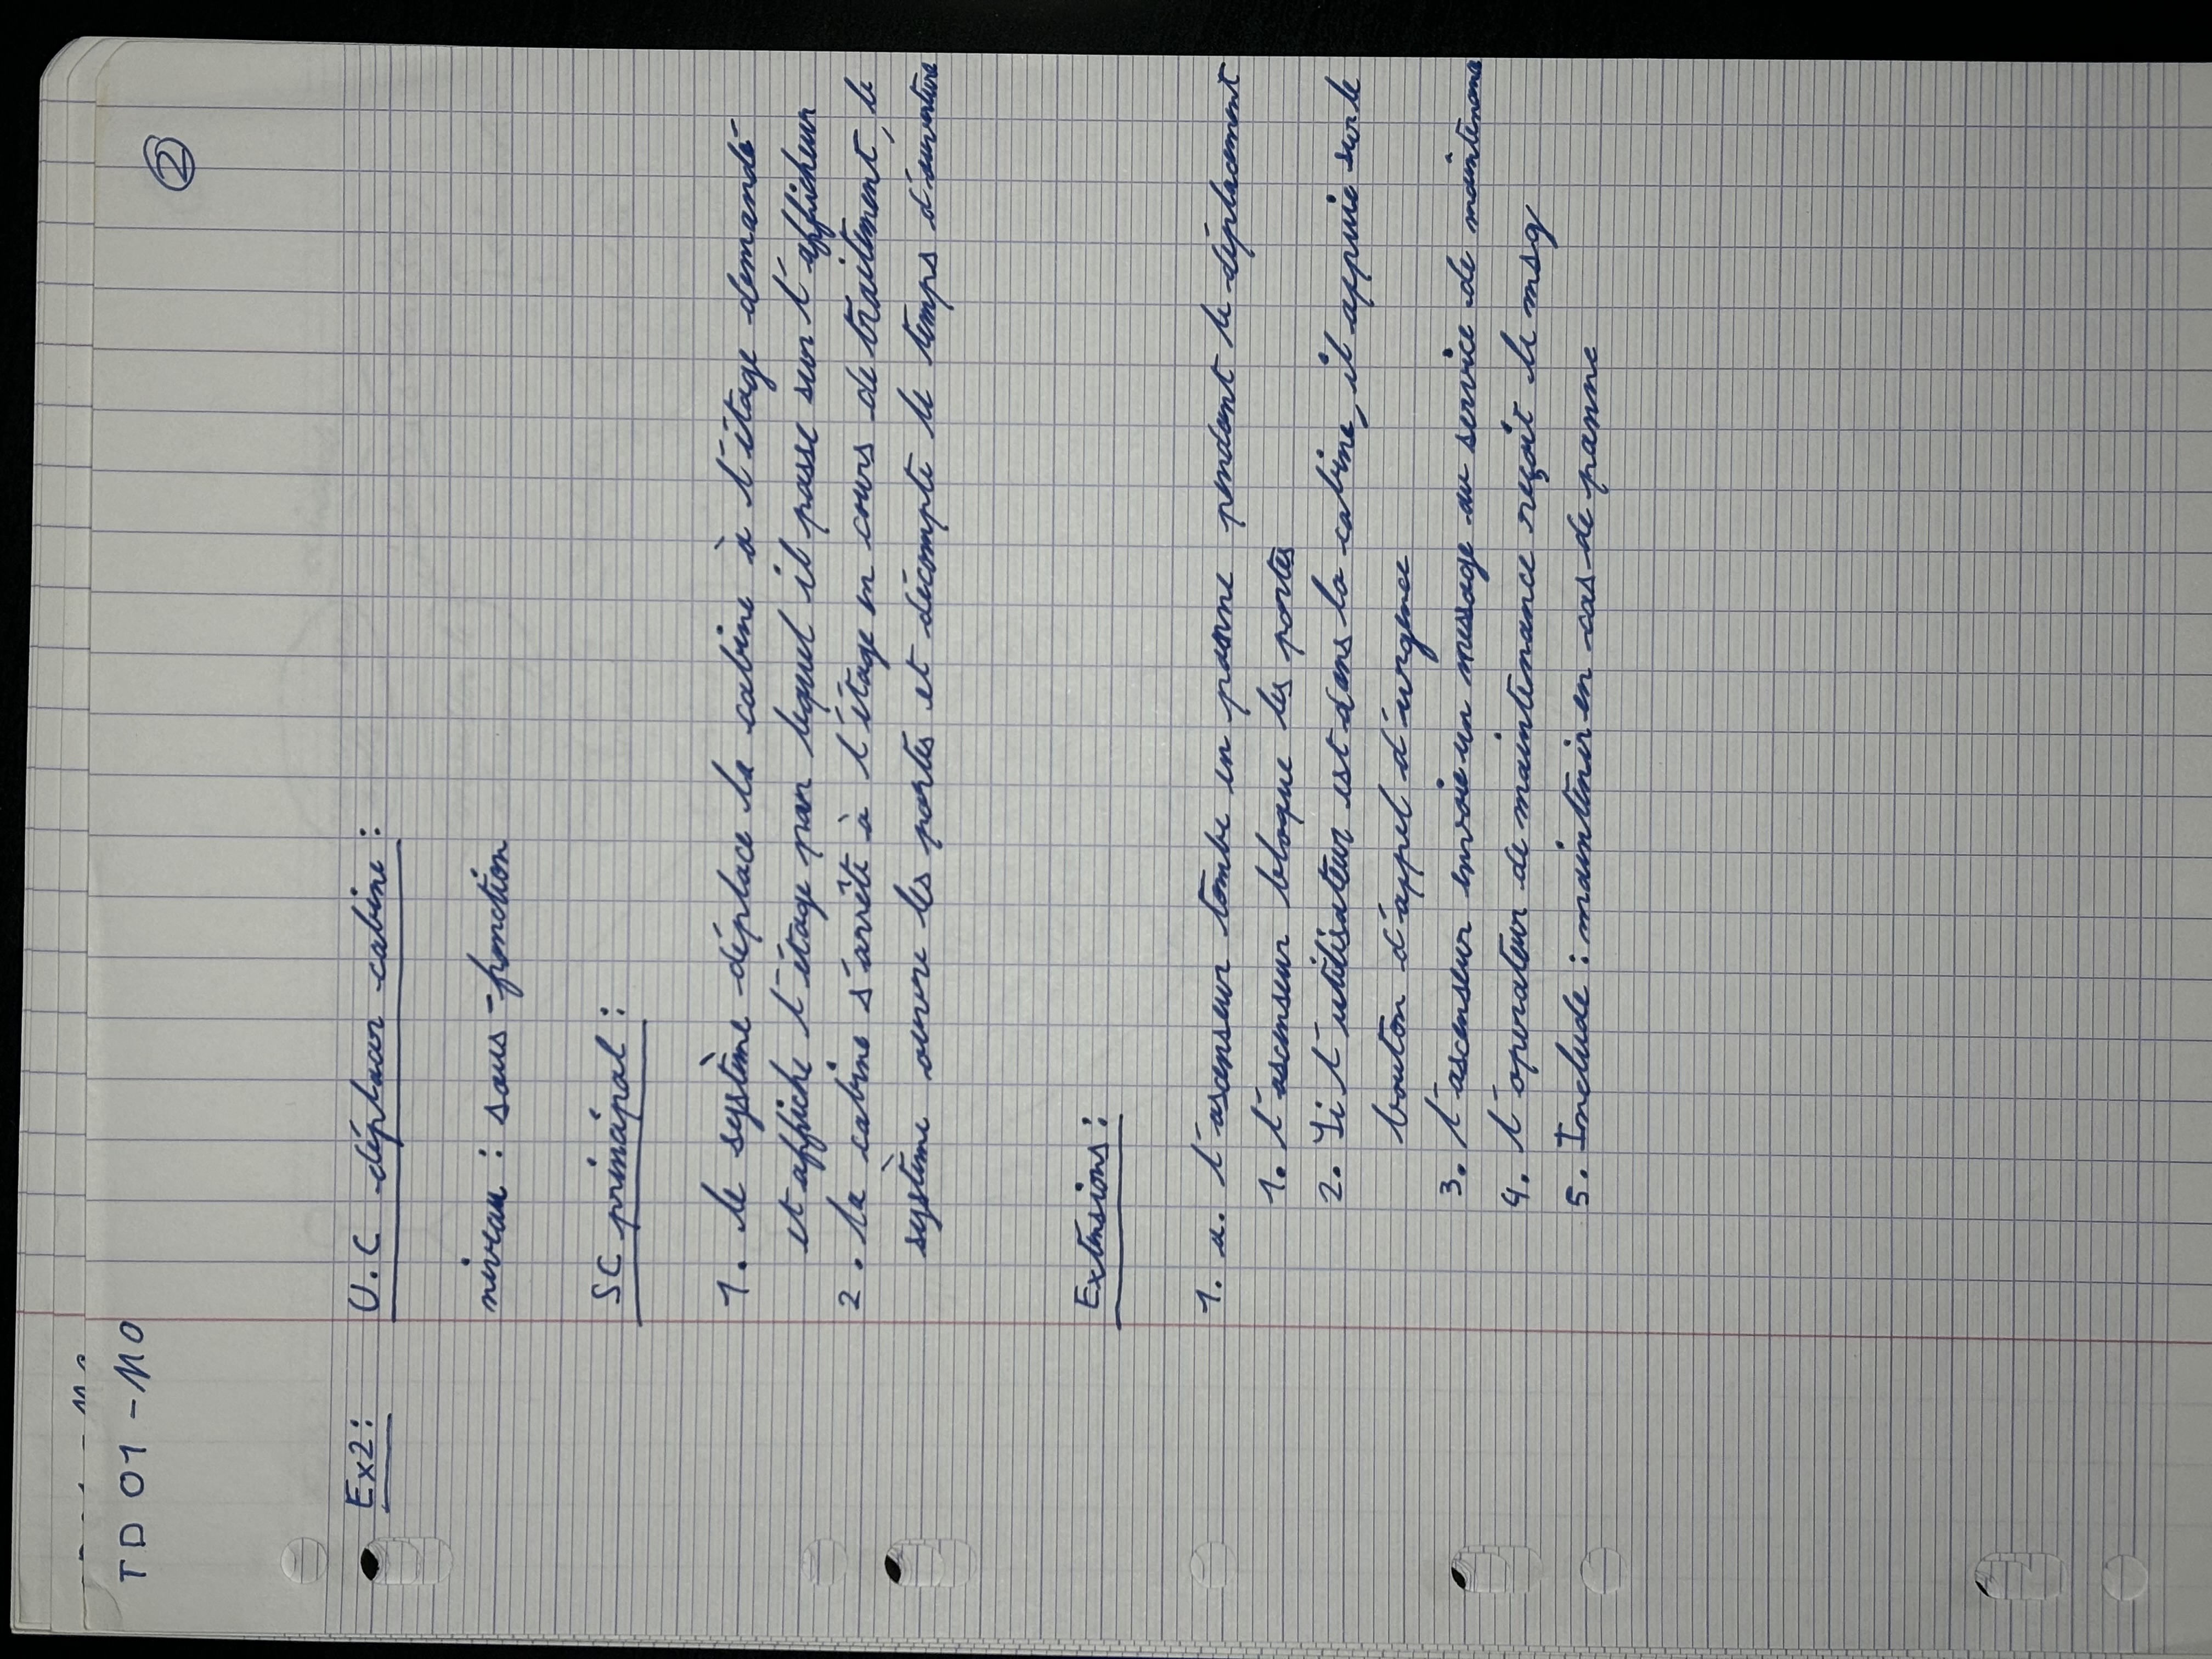 TD 01 - MO
2
Ex2: U.C déplacer cabine :
niveau : sous-fonction
SC principal :
1. le système déplace la cabine à l'étage demandé
et affiche l'étage par lequel il passe sur l'afficheur
2. la cabine s'arrête à l'étage en cours de traitement, le
système ouvre les portes et décompte le temps d'ouverture
Extensions :
1. a. l'ascenseur tombe en panne pendant le déplacement
1. l'ascenseur bloque les portes
2. Si l'utilisateur est dans la cabine, il appuie sur le
bouton d'appel d'urgence
3. l'ascenseur envoie un message au service de maintenance
4. l'operateur de maintenance reçoit le msg
5. Include : maintenir en cas de panne